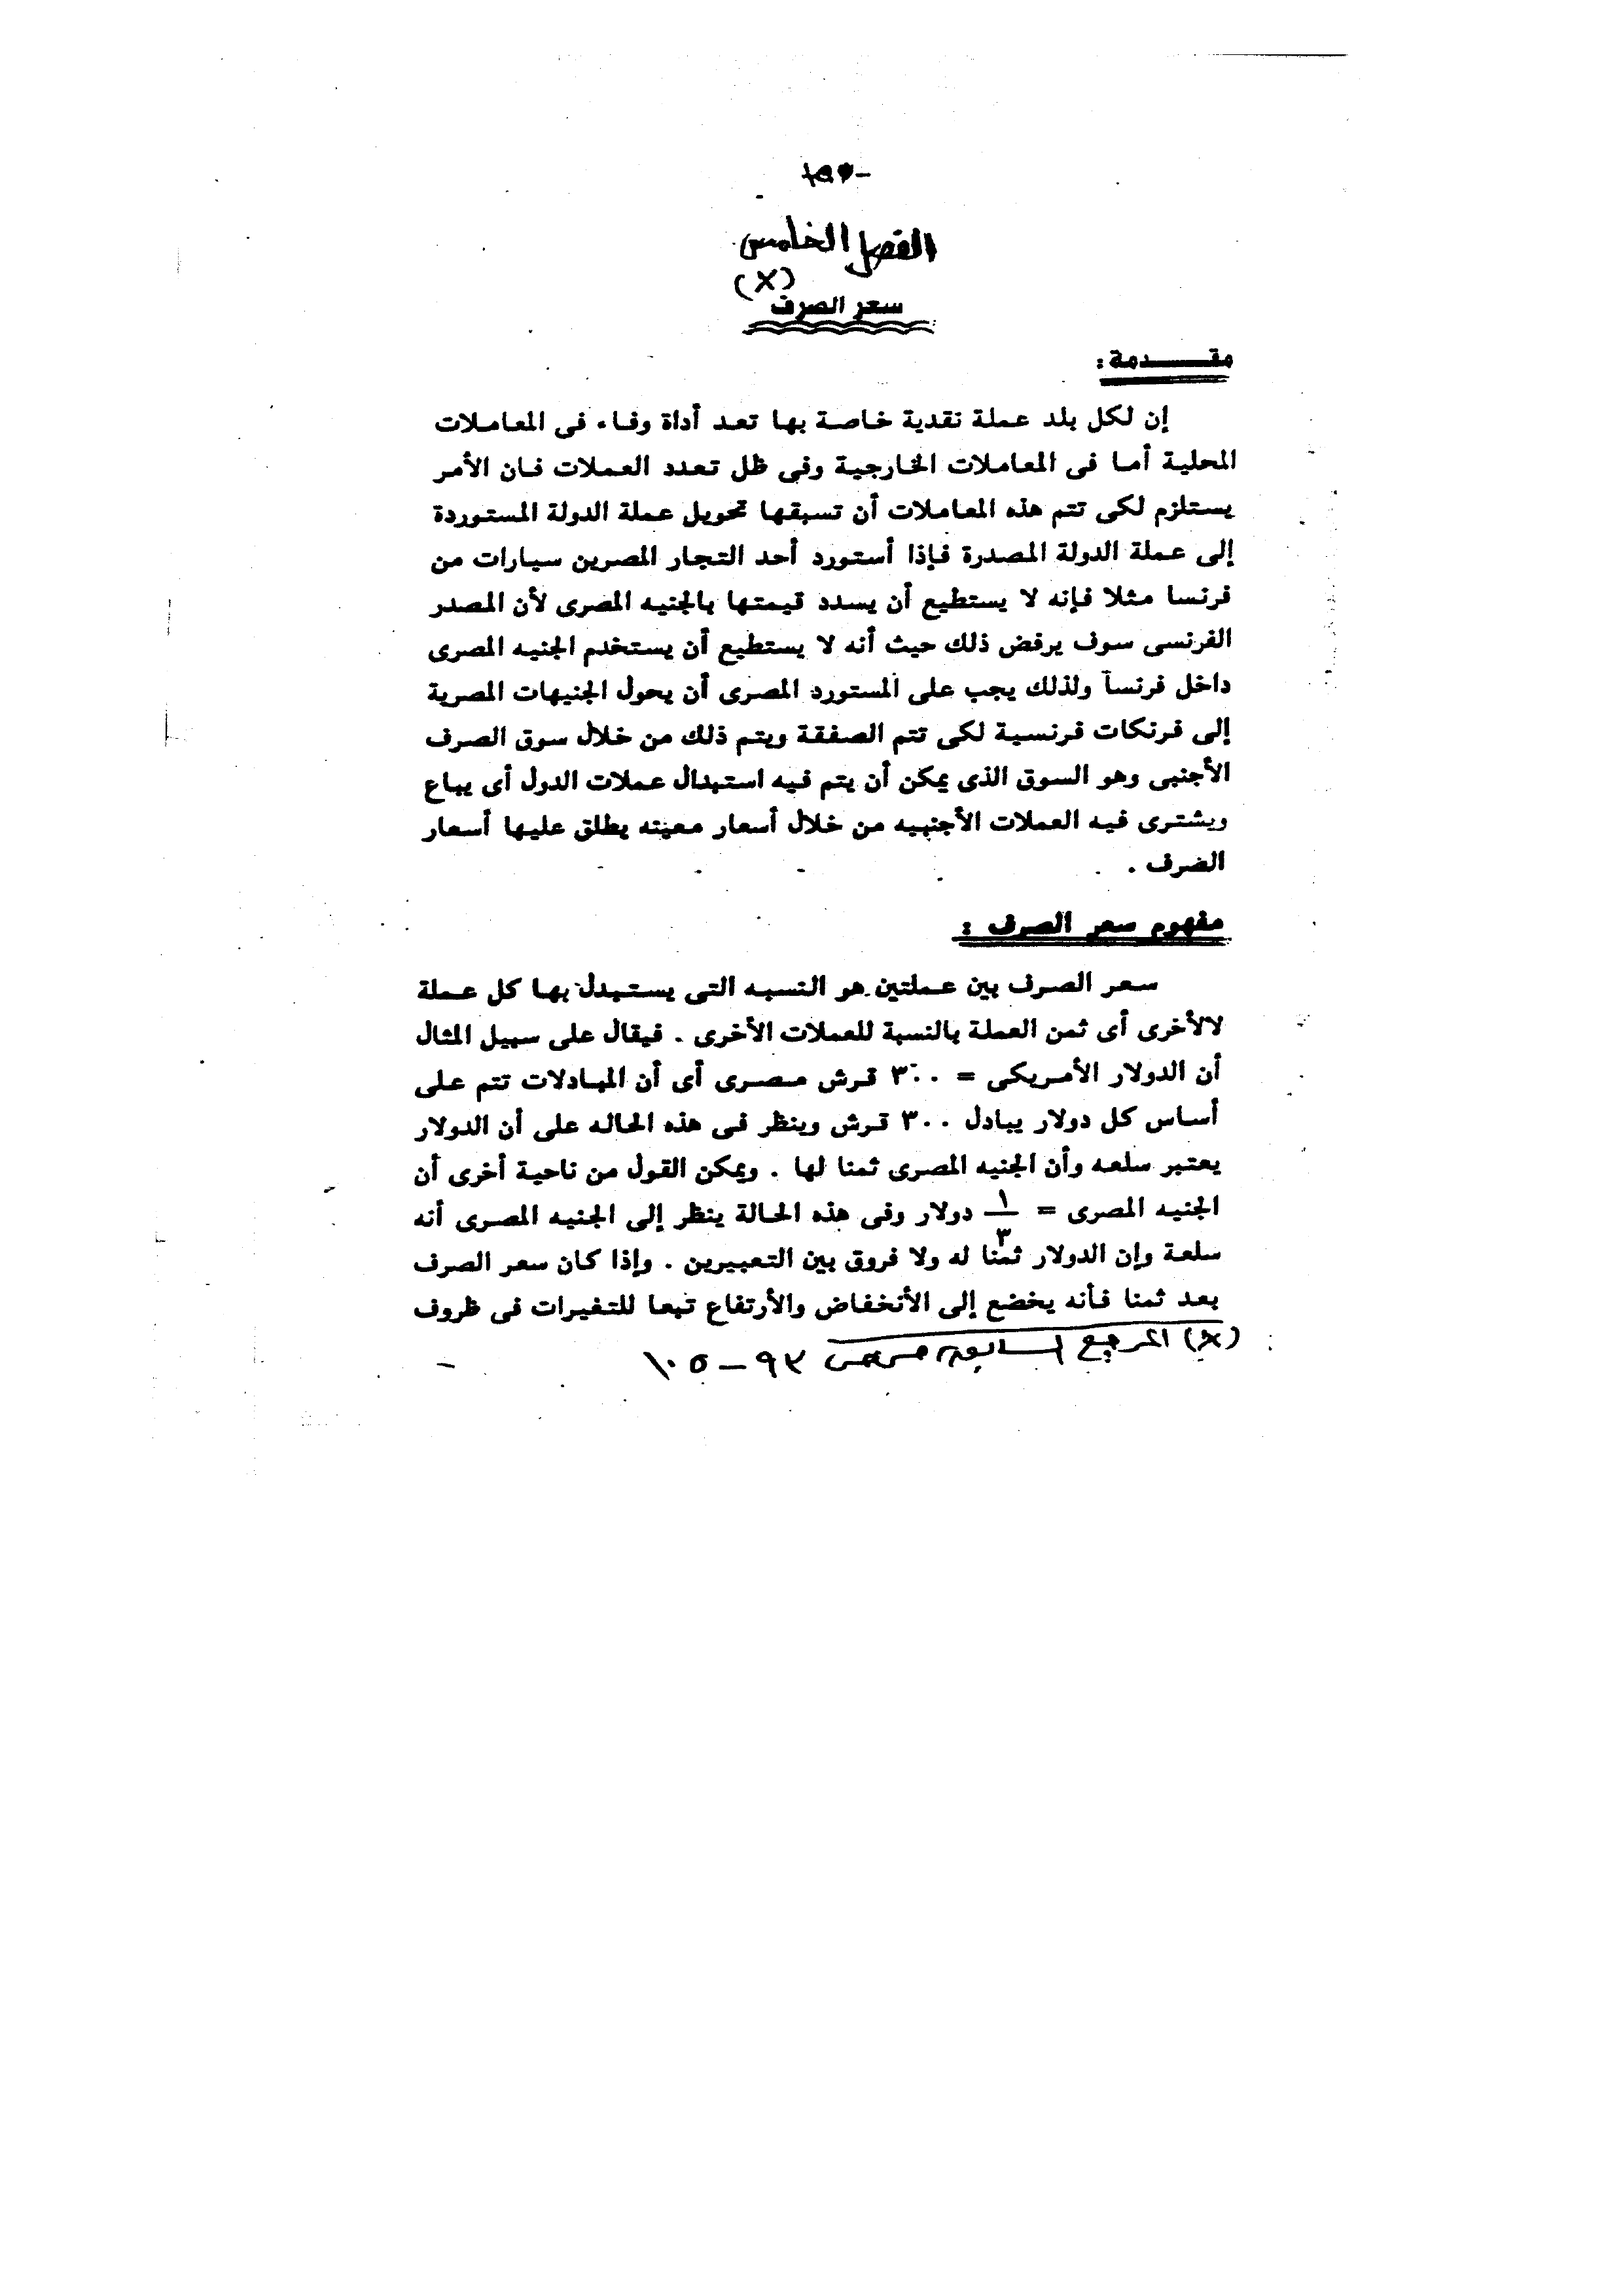 الفصل الخامس
(X)
سعر الصرف
مقـــدمة :
إن لكل بلد عملة نقدية خاصة بها تعد أداة وفاء فى المعاملات
المحلية أما فى المعاملات الخارجية وفى ظل تعدد العملات فان الأمر
يستلزم لكى تتم هذه المعاملات أن تسبقها تحويل عملة الدولة المستوردة
إلى عملة الدولة المصدرة فإذا أستورد أحد التجار المصرين سيارات من
فرنسا مثلا فإنه لا يستطيع أن يسدد قيمتها بالجنيه المصرى لأن المصدر
الفرنسى سوف يرفض ذلك حيث أنه لا يستطيع أن يستخدم الجنيه المصرى
داخل فرنسا ولذلك يجب على المستورد المصرى أن يحول الجنيهات المصرية
إلى فرنكات فرنسية لكى تتم الصفقة ويتم ذلك من خلال سوق الصرف
الأجنبى وهو السوق الذى يمكن أن يتم فيه استبدال عملات الدول أى يباع
ويشترى فيه العملات الأجنبيه من خلال أسعار معينه يطلق عليها أسعار
الصرف .
مفهوم سعر الصرف :
سعر الصرف بين عملتين هو النسبه التى يستبدل بها كل عملة
لالأخرى أى ثمن العملة بالنسبة للعملات الأخرى . فيقال على سبيل المثال
أن الدولار الأمريكى = ٣٠٠ قرش مصرى أى أن المبادلات تتم على
أساس كل دولار يبادل ٣٠٠ قرش وينظر فى هذه الحاله على أن الدولار
يعتبر سلعه وأن الجنيه المصرى ثمنا لها . ويمكن القول من ناحية أخرى أن
الجنيه المصرى = ١/٣ دولار وفى هذه الحالة ينظر إلى الجنيه المصرى أنه
سلعة وإن الدولار ثمنا له ولا فروق بين التعبيرين . وإذا كان سعر الصرف
يعد ثمنا فأنه يخضع إلى الأنخفاض والأرتفاع تبعا للتغيرات فى ظروف
(X) المرجع السابق ص ص ٩٣ - ١٠٥